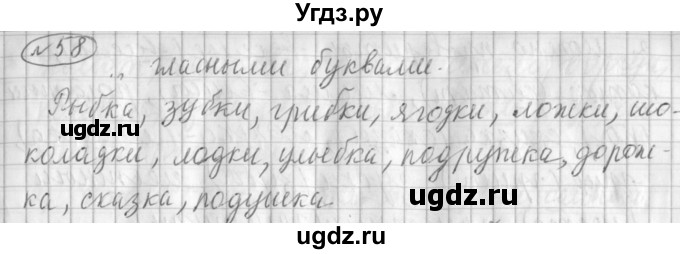 Угдз.ру
№58
.. гласными буквами.
Рыбка, зубки, грибки, ягодки, ложки, шо-
коладки, лодки, улыбка, подружка, дорож-
ка, сказка, подушка.
ugdz.ru ugdz.ru
ugdz.ru ugdz.ru